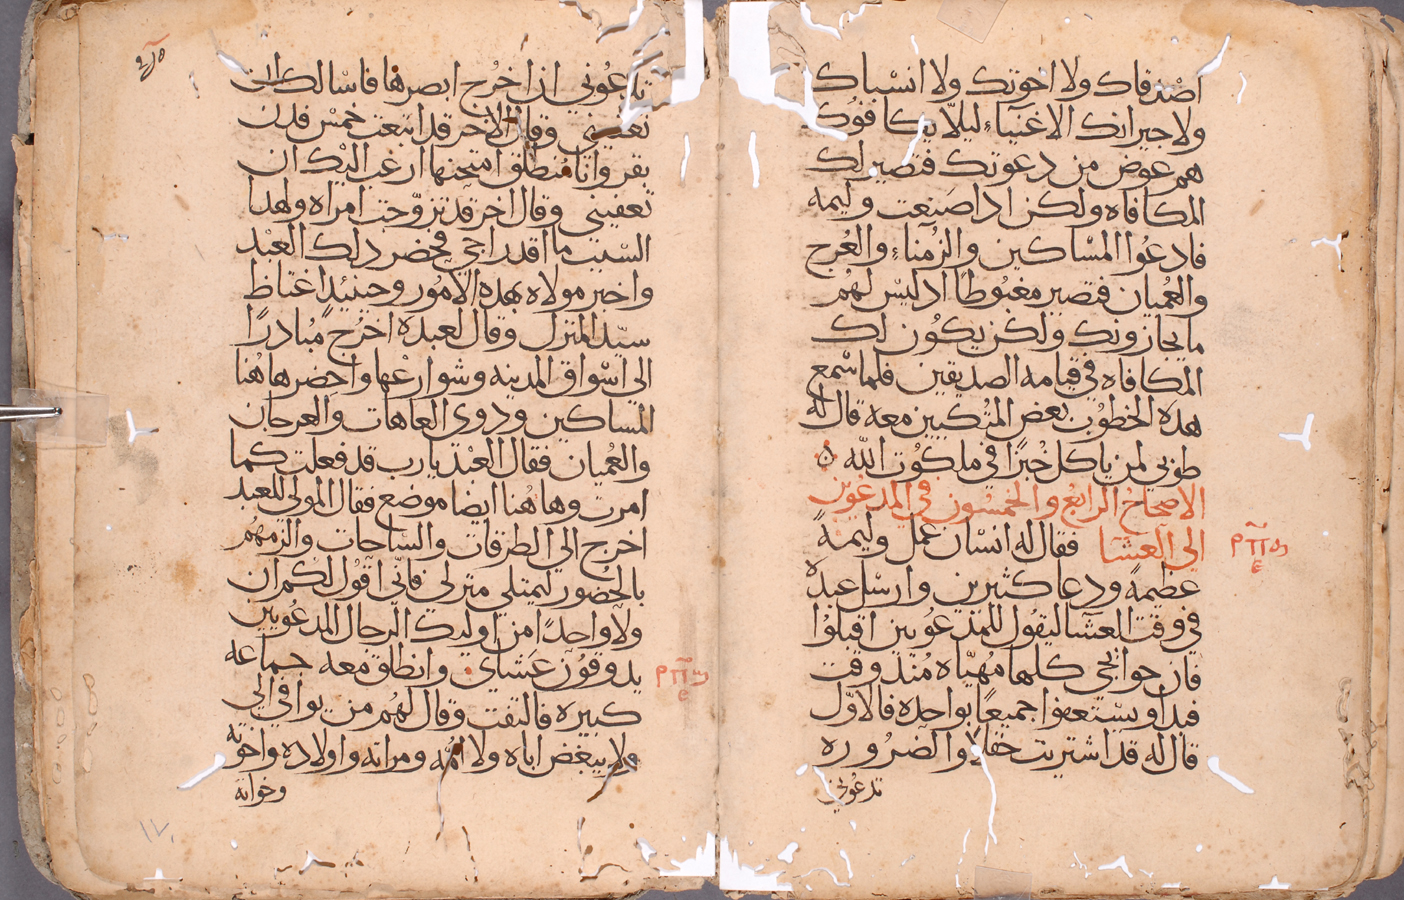 اصدقاك ولا اخوتك ولا انسباك
ولا جيرانك الاغنياء ليلا يكافوك
هم عوض من دعوتك فتصير لك
المكافاه ولكن اذا صنعت وليمه
فادعوا المساكين والزمناء والعرج
والعميان فتصير مغبوطا اذ ليس لهم
ما يجازونك ولكن يكون لك
المكافاه في قيامه الصديقين فلما سمع
هذه الخطوب بعض المتكيين معه قال له
طوبى لمن ياكل خبزا في ملكوت الله
الاصحاح الرابع والخمسون في المدعوين
الى العشا فقال له انسان عمل وليمة
عظيمة ودعا كثيرين وارسل عبده
في وقت العشا ليقول للمدعوين اقبلوا
فان حوايجي كلها مهياه منذ وقت
فبداو يستعفوا جميعا بواحده فالاول
قال له قد اشتريت حقلا والضروره
تدعوني
تدعوني اذا اخرج ابصرها فاسالك ان
تعفيني وقال الاخر قد ابتعت خمس فدن
بقر وانا منطلق امتحنها ارغب اليك ان
تعفيني وقال اخر قد تزوجت امراه ولهذا
السبب ما اقدر اجي فحضر ذلك العبد
واخبر مولاه بهذه الامور وحينيذ اغتاظ
سيد المنزل وقال لعبده اخرج مبادرا
الى اسواق المدينه وشوارعها واحضر هاهنا
المساكين وذوي العاهات والعرجان
والعميان فقال العبد يارب قد فعلت كما
امرت وهاهنا ايضا موضع فقال المولى للعبد
اخرج الى الطرقات والساحات والزمهم
بالحضور ليمتلي منزلي فاني اقول لكم ان
ولا واحدا من اوليك الرجال المدعويين
يذوقون عشاي وانطلق معه جماعه
كبيره فالتفت وقال لهم من يوافي الي
ولا يبغض اباه ولا امه ومراته واولاده واخوته
وخواته